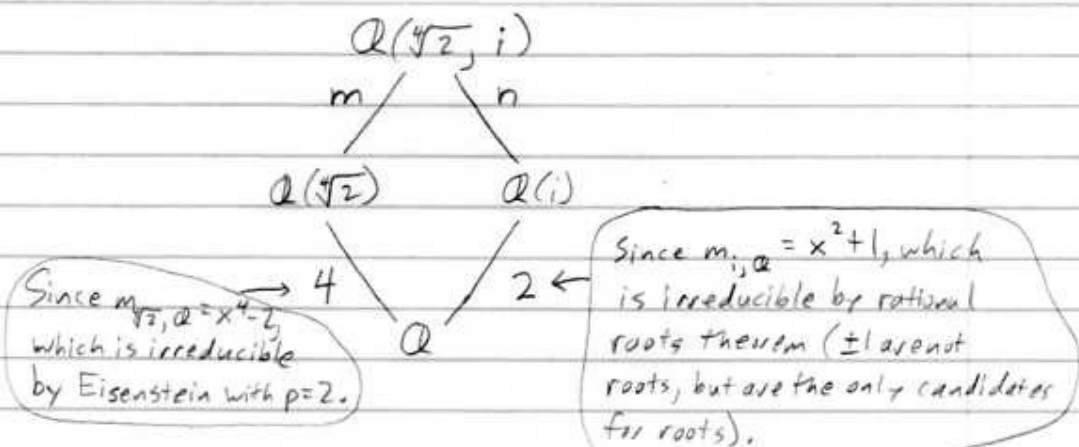 Q(∜2, i)
m n
Q(∜2) Q(i)
Since m_{√2, Q} = x⁴-2,
which is irreducible
by Eisenstein with p=2.
→ 4
2 ←
Q
Since m_{i, Q} = x²+1, which
is irreducible by rational
roots theorem (±1 are not
roots, but are the only candidates
for roots).